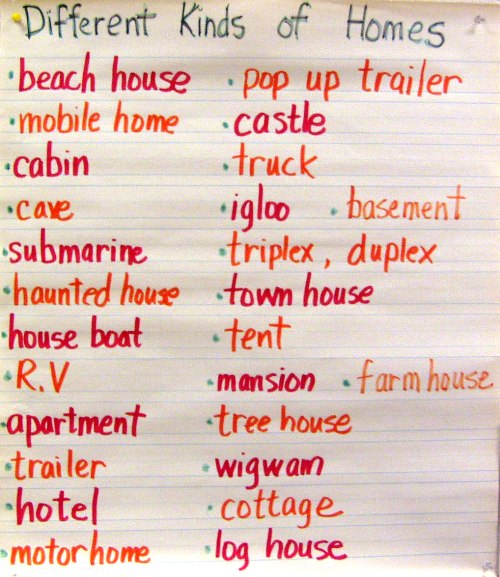 Different Kinds of Homes
• beach house • pop up trailer
• mobile home • castle
• cabin • truck
• cave • igloo • basement
• submarine • triplex, duplex
• haunted house • town house
• house boat • tent
• R.V • mansion • farm house
• apartment • tree house
• trailer • wigwam
• hotel • cottage
• motorhome • log house